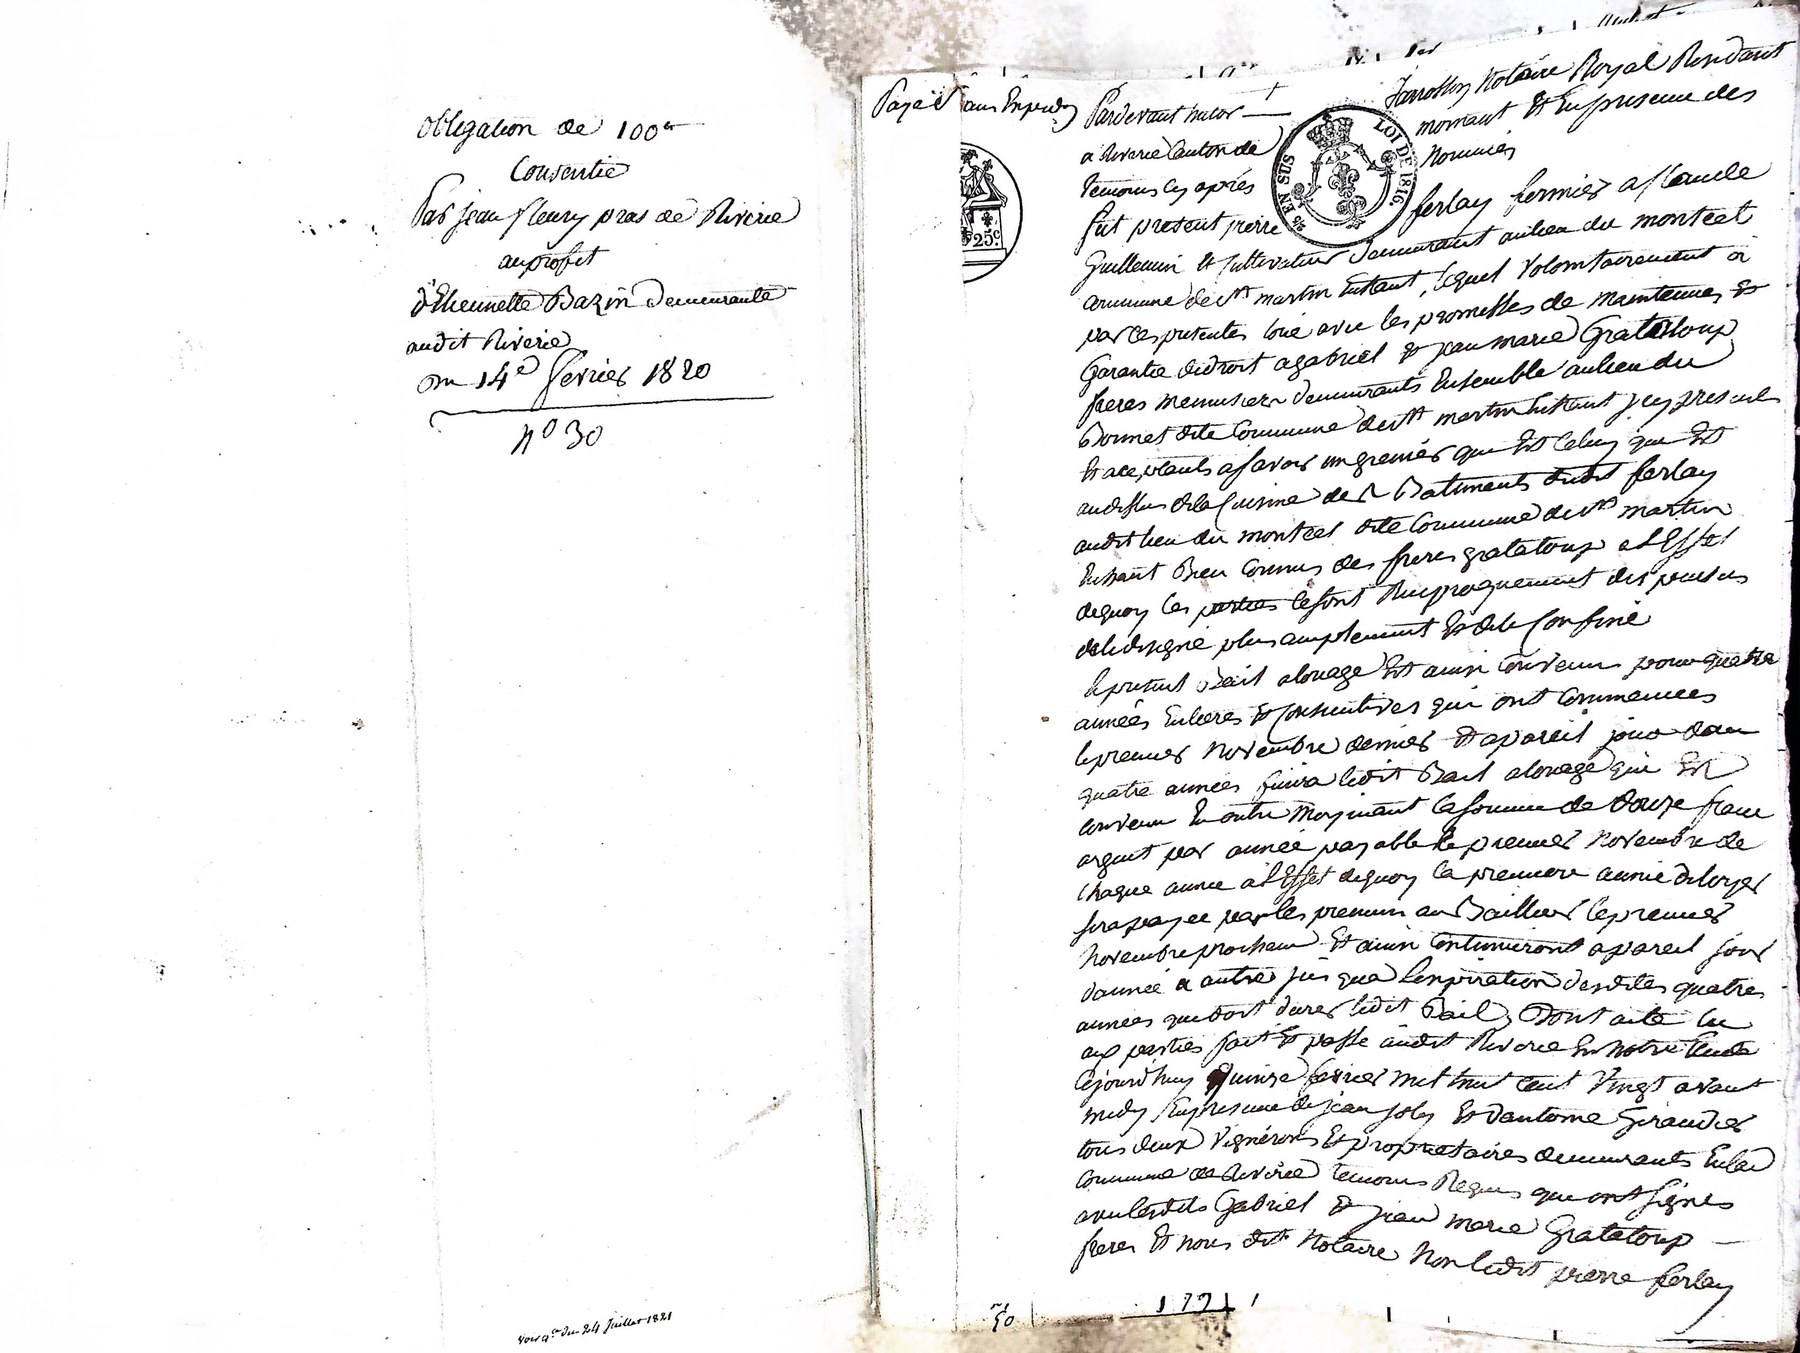 Obligation de 100fr
Consentie
Par jean fleury pras de Riverie
au profit
d'Etiennette Bazin demeurante
audit Riverie
Du 14e fevrier 1820
n° 30
voir q.ce du 24 Juillet 1821
Pardevant
Notaire Royal Residant
a Riverie Canton de mornant Et En presence des
temoins cy après Nommés
fut present pierre ferlay fermier a
Guillemin Et Cultivateur demeurant au lieu du monteel
commune de St martin Enhaut, lequel volontairement a
par ces presentes loué avec les promesses de maintenue Et
Garantie de droit a gabriel Et jean marie Grataloup
freres menusiers demeurants Ensemble au lieu du
Bonnet dite Commune de St martin Enhaut jcy presents
Et acceptants a savoir un grenier qui Est Celuy qui Est
au dessus de la Cuisine des Batiments dudit ferlay
audit lieu du monteel dite Commune de St martin
Enhaut Bien Connus des freres grataloup a l'Effet
de quoy les parties se sont Reciproquement dispensés
de le designé plus amplement Et de le Confiné
le present Bail a louage Est ainsi Convenu pour quatre
années Entieres Et Consecutives qui ont Commencées
le premier Novembre dernier Et a pareil jour dans
quatre années finira ledit Bail a louage qui Est
convenu En outre Moyennant la somme de douze francs
argent par année payable le premier Novembre de
chaque année a l'Effet de quoy la premiere année de loyer
sera payée par les preneurs au Bailleur le premier
Novembre prochain Et ainsi Continueront a pareil jour
d'année a autre jusqua l'expiration desdites quatres
années que doit durer ledit Bail, Dont acte lu
aux parties fait Et passé audit Riverie En notre Etude
Cejourd'huy quinze fevrier mil huit cent Vingt avant
midy En presence de jean joly Et d'antoine Giraudier
tous deux Vignerons Et proprietaires demeurants En la
Commune de Riverie temoins Requis qui ont Signés
avec lesdits Gabriel Et jean marie Grataloup
freres Et nous dit Notaire Non ledit pierre ferlay
25 EN SUS
LOI DE 1816.
25c.